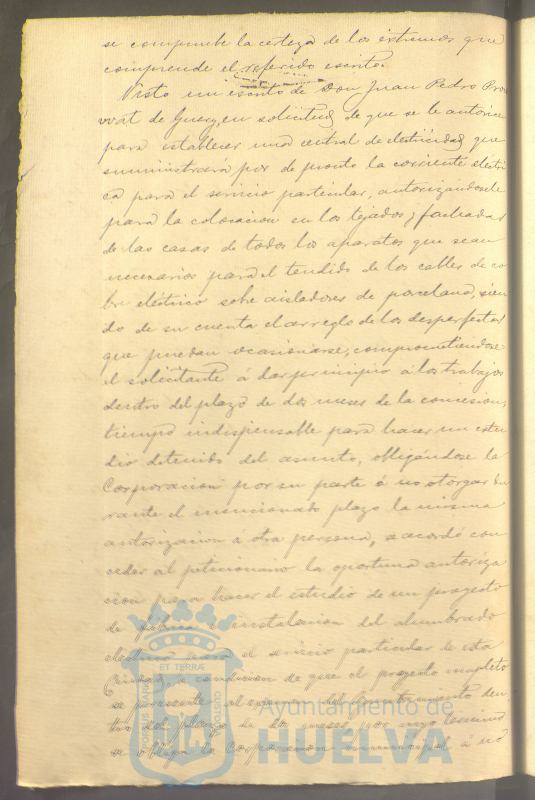 se compruebe la certeza de los extremos que
comprende el referido escrito.
Visto un escrito de Don Juan Pedro
de en solicitud de que se le autorice
para establecer una central de electricidad que
suministrará por de pronto la corriente eléctri
ca para el servicio particular, autorizandosele
para la colocacion en los tejados y fachadas
de las casas de todos los aparatos que sean
necesarios para el tendido de los cables de co
bre eléctrico sobre aisladores de porcelana, sien
do de su cuenta el arreglo de los desperfectos
que puedan ocasionarse, comprometiendose
el solicitante á dar principio á los trabajos
dentro del plazo de dos meses de la concesion,
tiempo indispensable para hacer un estu
dio detenido del asunto, obligándose la
Corporacion por su parte á no otorgar du
rante el mencionado plazo la misma
autorizacion á otra persona, se acordó con
ceder al peticionario la oportuna autoriza
cion para hacer el estudio de un proyecto
de fábrica é instalacion del alumbrado
eléctrico para el servicio particular de esta
Ciudad, á condicion de que el proyecto completo
se presente al del Ayuntamiento den
tro del plazo de dos meses por cuyo termino
se obliga la Corporacion municipal á no
Ayuntamiento de
HUELVA
PORTUS MARIS
ET TERRÆ
CUSTODIA